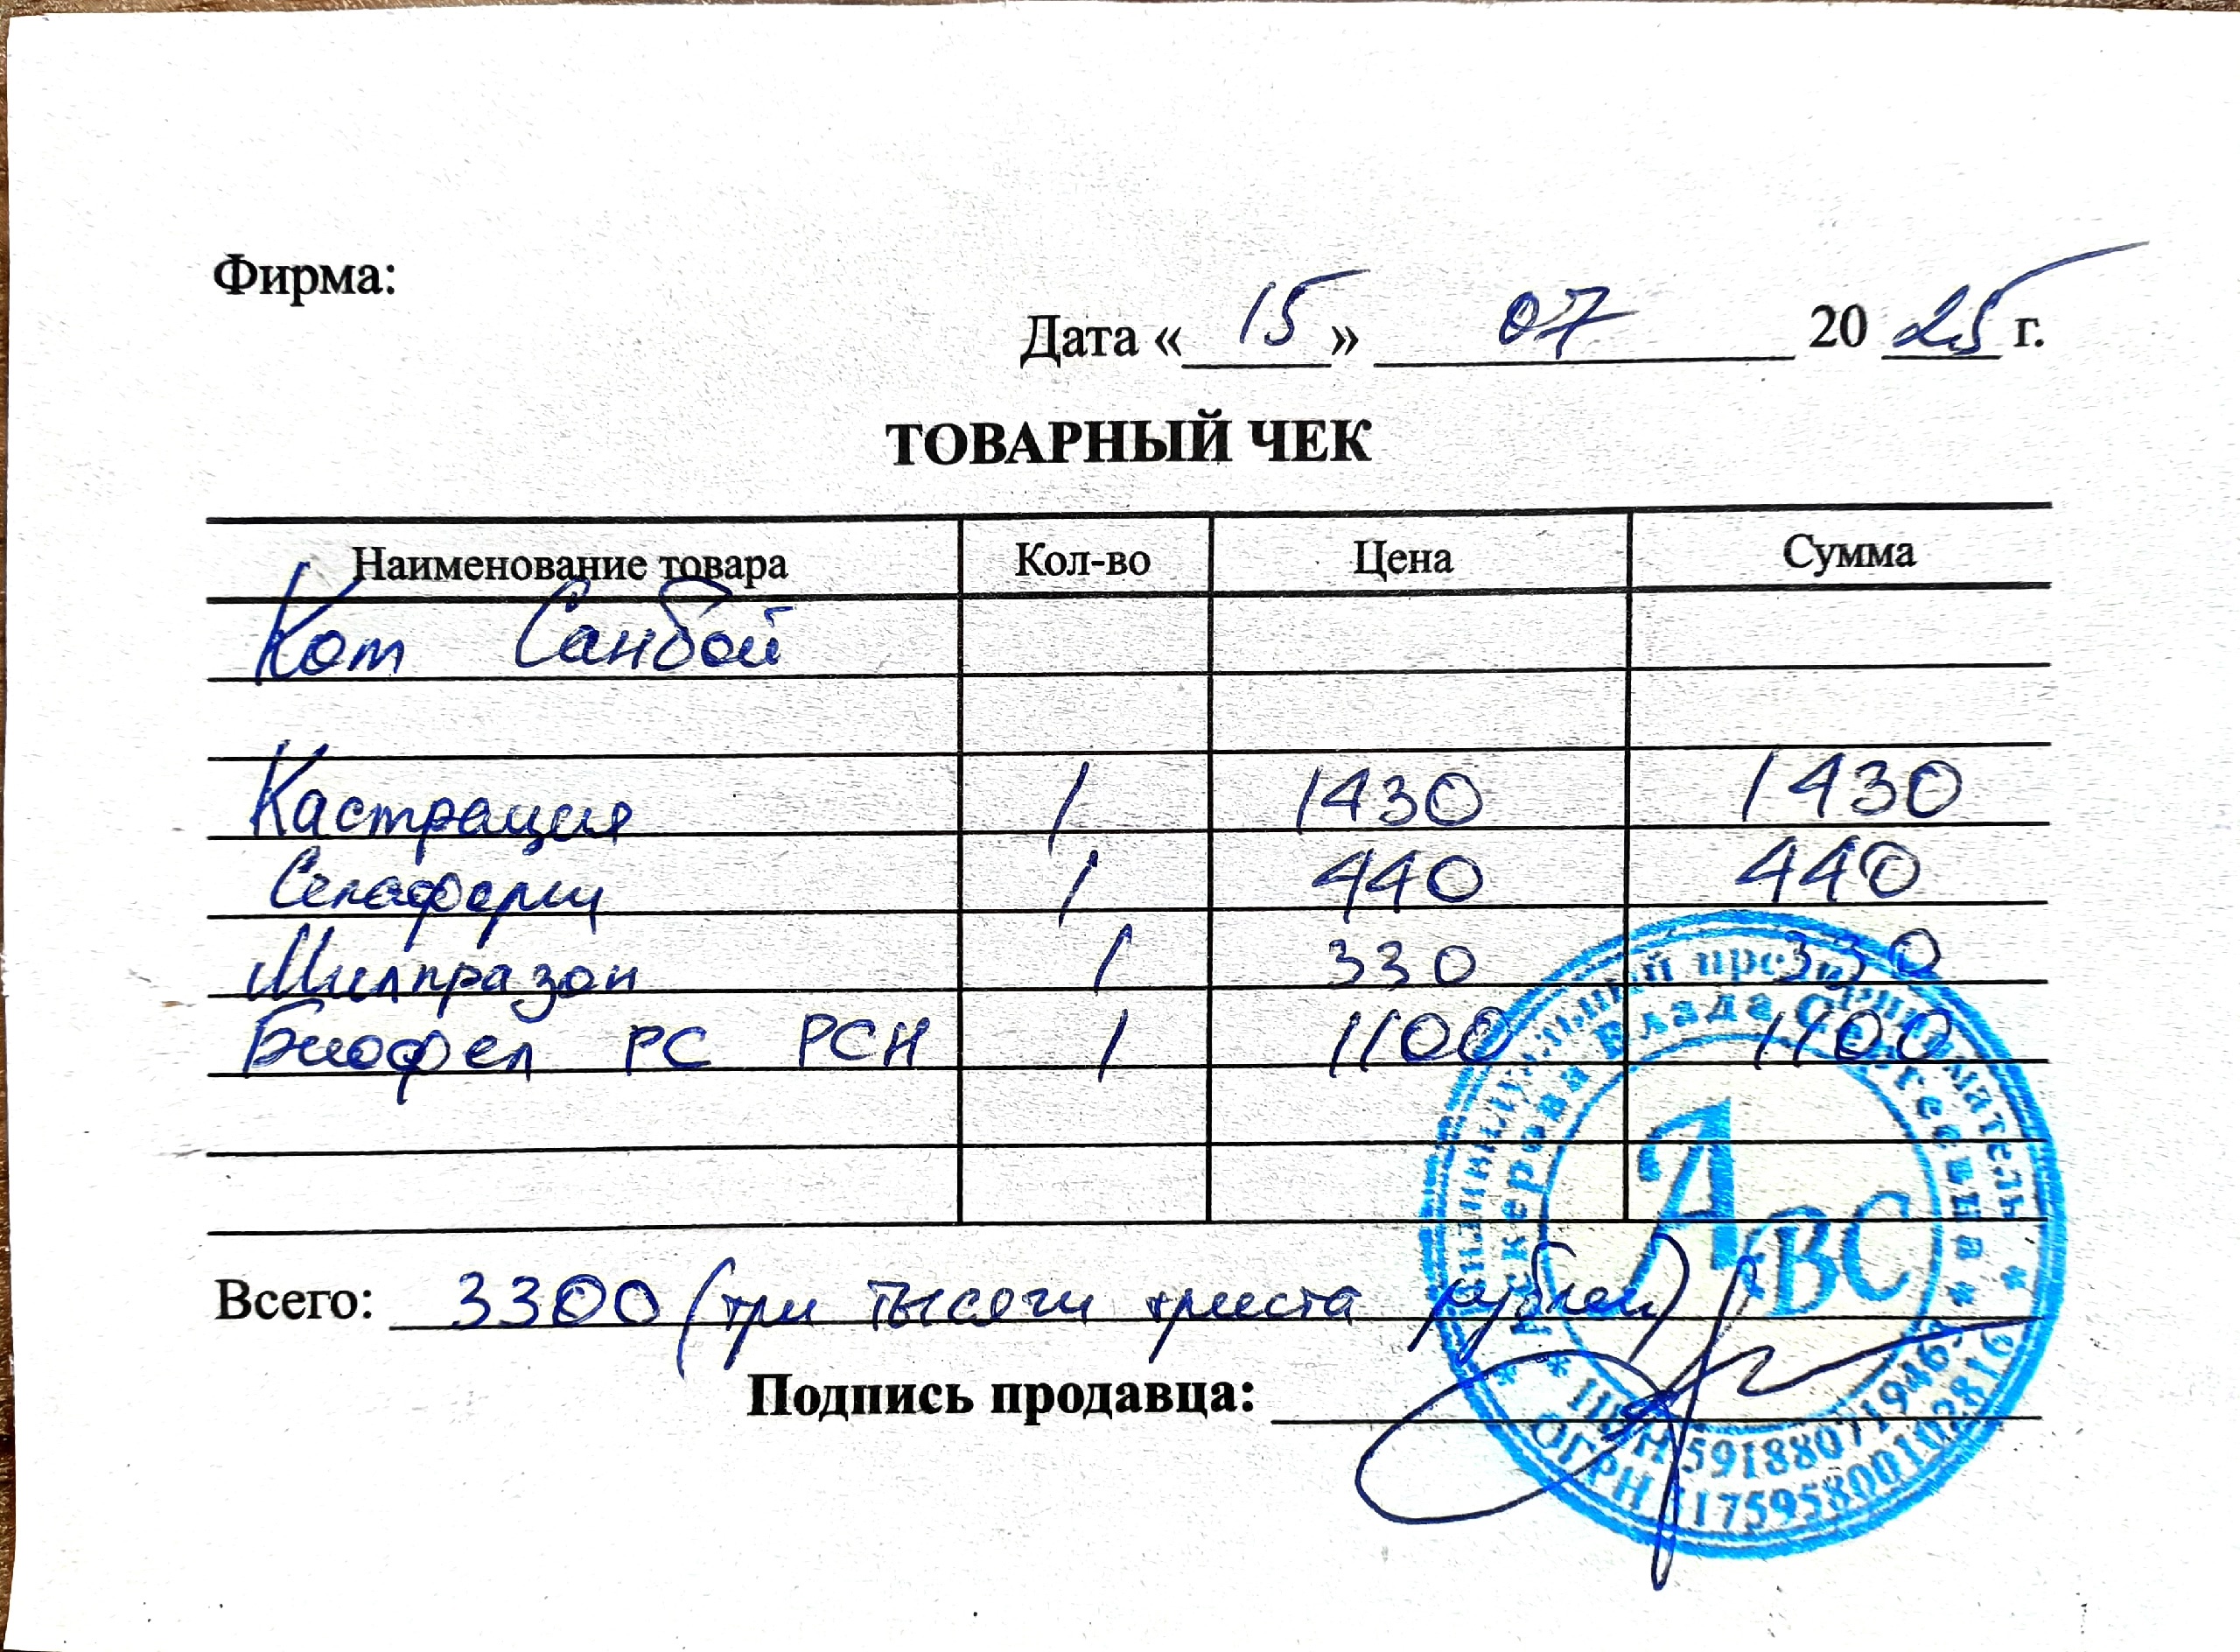 Фирма:
Дата « 15 » 07 20 25 г.
ТОВАРНЫЙ ЧЕК
Наименование товара Кол-во Цена Сумма
Кот Санбой
Кастрация 1 1430 1430
Селаферм 1 440 440
Милпразон 1 330 330
Биофел РС РСН 1 1100 1100
Всего: 3300 (три тысячи триста рублей)
Подпись продавца:
Индивидуальный предприниматель
Влада Олеговна
АВС
ИНН
ОГРН